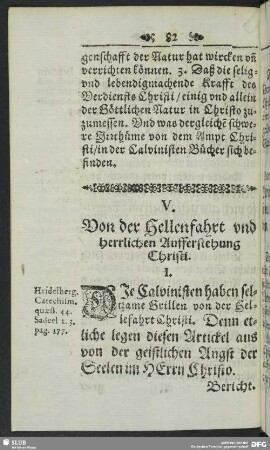 82
genschafft der Natur hat wircken vñ
verrichten können. 3. Daß die selig-
vnd lebendigmachende Krafft des
Verdiensts Christi / einig vnd allein
der Göttlichen Natur in Christo zu-
zumessen. Vnd was dergleichē schwe-
re Irrthüme von dem Ampt Chri-
sti / in der Calvinisten Bücher sich be-
finden.
V.
Von der Hellenfahrt vnd
herrlichen Aufferstehung
Christi.
I.
DIe Calvinisten haben sel-
tzame Grillen von der Hel-
lefahrt Christi. Denn et-
liche legen diesen Artickel aus
von der geistlichen Angst der
Seelen im HErrn Christo.
Bericht.
Heidelberg.
Catechism.
quæst. 44.
Sadeel t. 3.
pag. 177.
SLUB